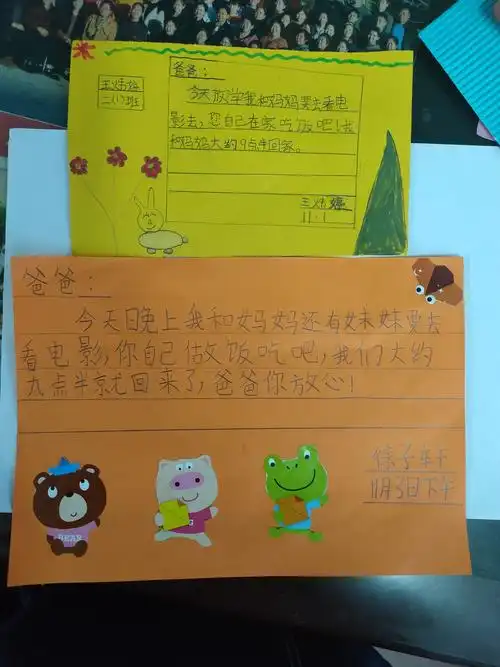 爸爸：
王炜婷
二(1)班
今天放学我和妈妈要去看电
影去，您自己在家吃饭吧！我
和妈妈大约9点半回家。
王炜婷
11.1
爸爸：
今天日晚上我和妈妈还有妹妹要去
看电影，你自己做饭吃吧，我们大约
九点半就回来了，爸爸你放心！
子轩
11月3日下午
BEAR